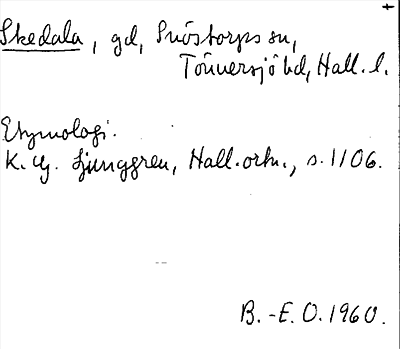 Skedala, gd, Snöstorps sn,
Tönnersjö hd, Hall. l.
Etymologi.
K. G. Ljunggren, Hall. ortn., s. 1106.
B.-E. O. 1960.